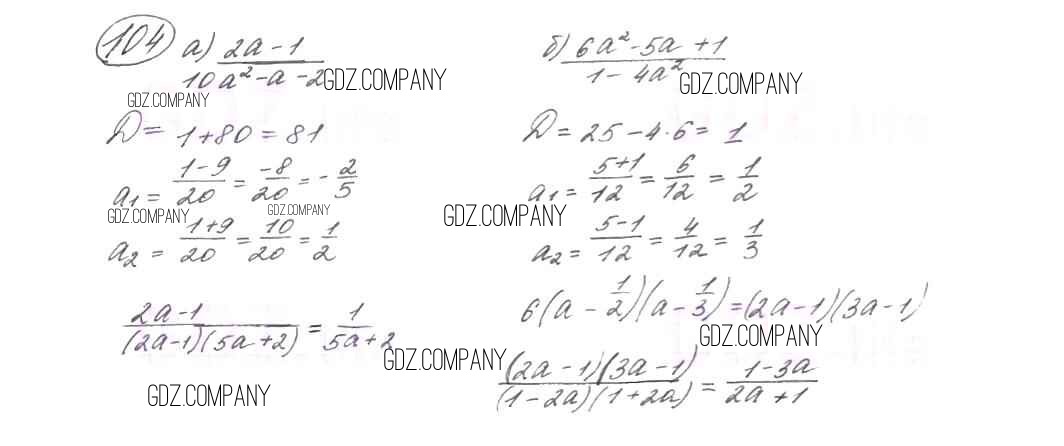 104 а) (2a - 1)/(10a² - a - 2)
GDZ.COMPANY
GDZ.COMPANY
D = 1 + 80 = 81
a₁ = (1 - 9)/20 = -8/20 = -2/5
GDZ.COMPANY
GDZ.COMPANY
a₂ = (1 + 9)/20 = 10/20 = 1/2
(2a - 1)/((2a - 1)(5a + 2)) = 1/(5a + 2)
GDZ.COMPANY
GDZ.COMPANY
б) (6a² - 5a + 1)/(1 - 4a²)
GDZ.COMPANY
D = 25 - 4·6 = 1
a₁ = (5 + 1)/12 = 6/12 = 1/2
GDZ.COMPANY
a₂ = (5 - 1)/12 = 4/12 = 1/3
6(a - 1/2)(a - 1/3) = (2a - 1)(3a - 1)
GDZ.COMPANY
((2a - 1)(3a - 1))/((1 - 2a)(1 + 2a)) = (1 - 3a)/(2a + 1)